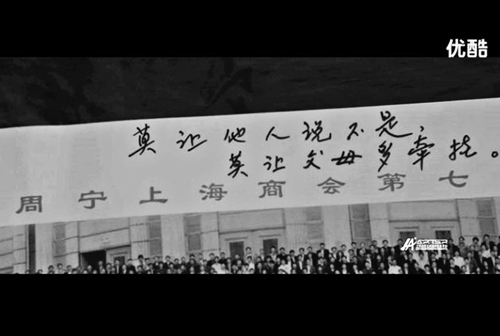 优酷
莫让他人说不是，
莫让父母多牵挂。
周宁上海商会第七